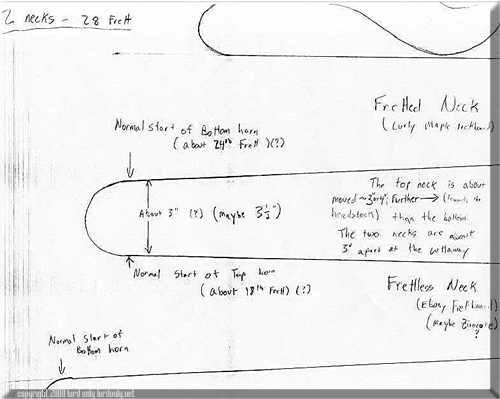 2 necks - 28 Frett
Fretted Neck
(Curly Maple Fretboard)
Normal start of Bottom horn
(about 24th Frett)(?)
The top neck is about
moved ~3" or 4" further → (towards the
headstock) than the bottom.
The two necks are about
3" apart at the cuttaway
About 3" (?) (maybe 3½")
Normal start of Top horn
(about 18th Frett) (?)
Frettless Neck
(Ebony Fretboard)
(Maybe
?
Normal start of
Bottom horn
copyright lord only lordonly.net